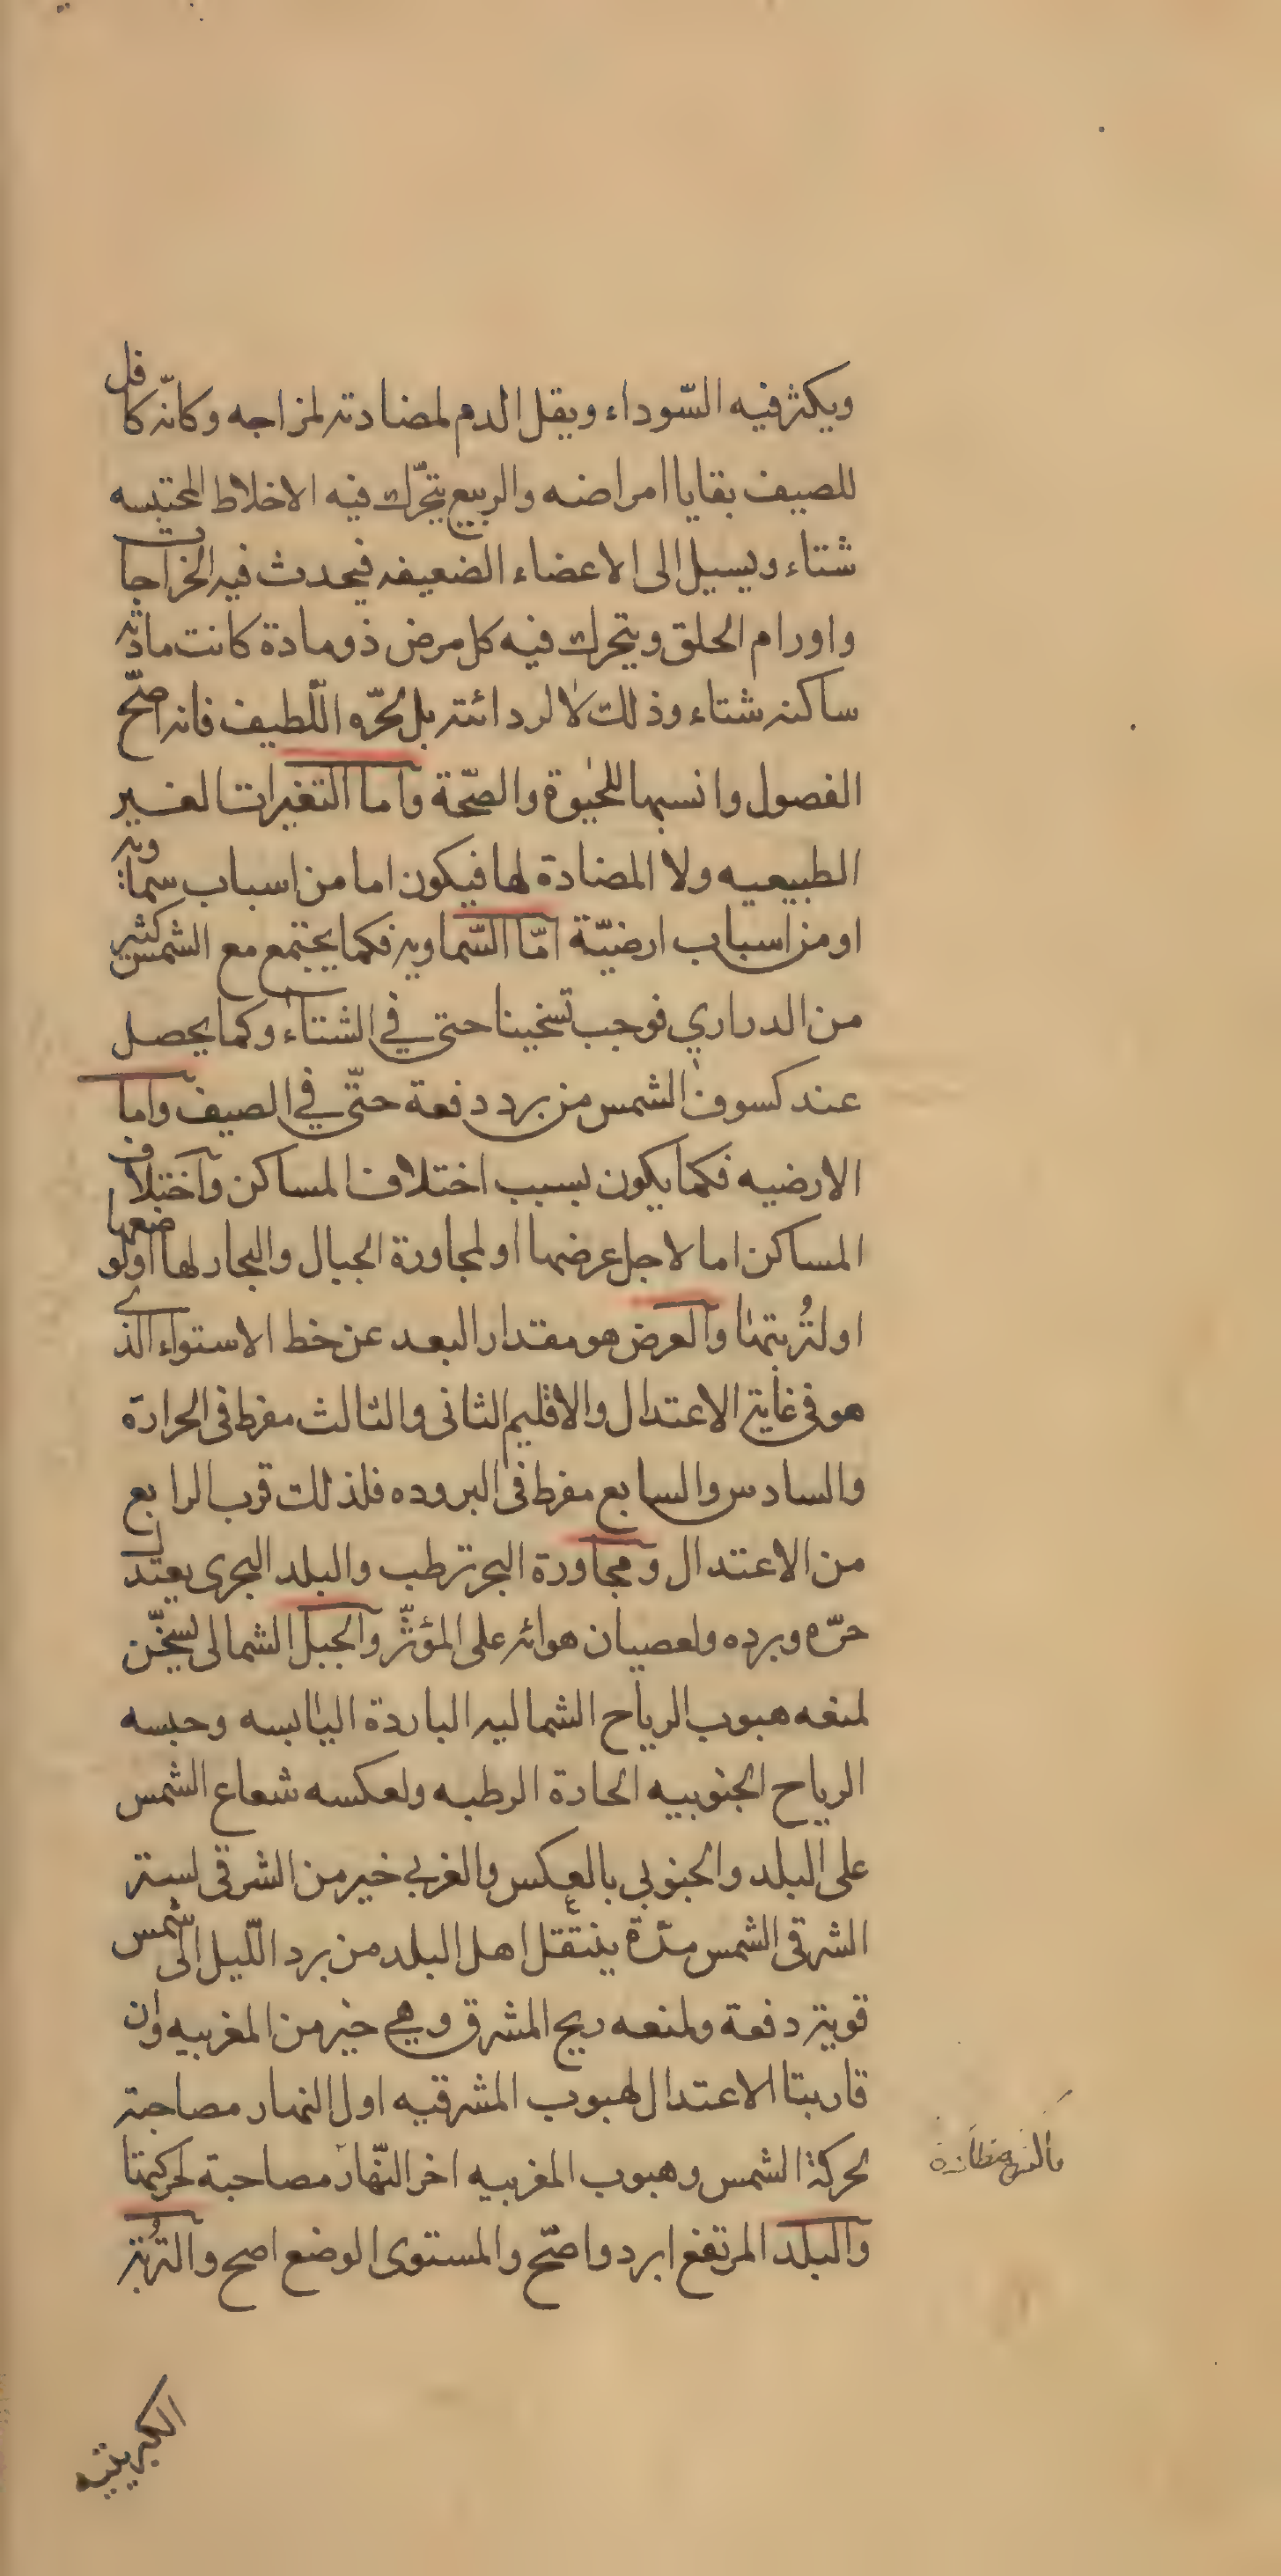 ويكثر فيه السّوداء ويقل الدم لمضادته لمزاجه وكانّه كافل
للصيف بقايا امراضه والربيع يتحرّك فيه الاخلاط المحتبسه
شتاء ويسيل الى الاعضاء الضعيفه فيحدث فيه الخراجات
واورام الحلق ويتحرك فيه كل مرض ذو مادة كانت مادته
ساكنه شتاء وذلك لا لردائته بل لحرّه اللّطيف فانه اصحّ
الفصول وانسبها للحيوة والصحّة وآما التغيرات الغير
الطبيعيه ولا المضادة لها فيكون اما من اسباب سماويه
او من اسباب ارضيّة امّا السّماويه فكما يجتمع مع الشمس كثير
من الدراري فوجب تسخينا حتى في الشتاء وكما يحصل
عند كسوف الشمس من برد دفعة حتّى في الصيف وآما
الارضيه فكما يكون بسبب اختلاف المساكن وآختلاف
المساكن اما لاجل عرضها او لمجاورة الجبال والبحار لها اولوضعها
او لتُربتها وآلعرض هو مقدار البعد عن خط الاستواء الذى
هو في غاية الاعتدال والاقليم الثانى والثالث مفرط فى الحرارة
والسادس والسابع مفرط فى البروده فلذلك قرب الرابع
من الاعتدال ومجاورة البحر ترطب والبلد البحرى يعتدل
حرّه وبرده ولعصيان هوائه على المؤثّر وآلجبل الشمالى يسخّن
لمنعه هبوب الرياح الشماليه الباردة اليابسه وحبسه
الرياح الجنوبيه الحارة الرطبه ولعكسه شعاع الشمس
على البلد والجنوبي بالعكس والغربي خير من الشرقى لستر
الشرقى الشمس مدّة ينتقل اهل البلد من برد اللّيل الى شمس
قوية دفعة ولمنعه ريح المشرق وهي خير من المغربيه وان
قاربتا الاعتدال لهبوب المشرقيه اول النهار مصاحبة
لحركة الشمس وهبوب المغربيه اخر النّهار مصاحبة لحركتها
وآلبلد المرتفع ابرد واصحّ والمستوى الوضع اصح وآلتُربة
الكبريتيه